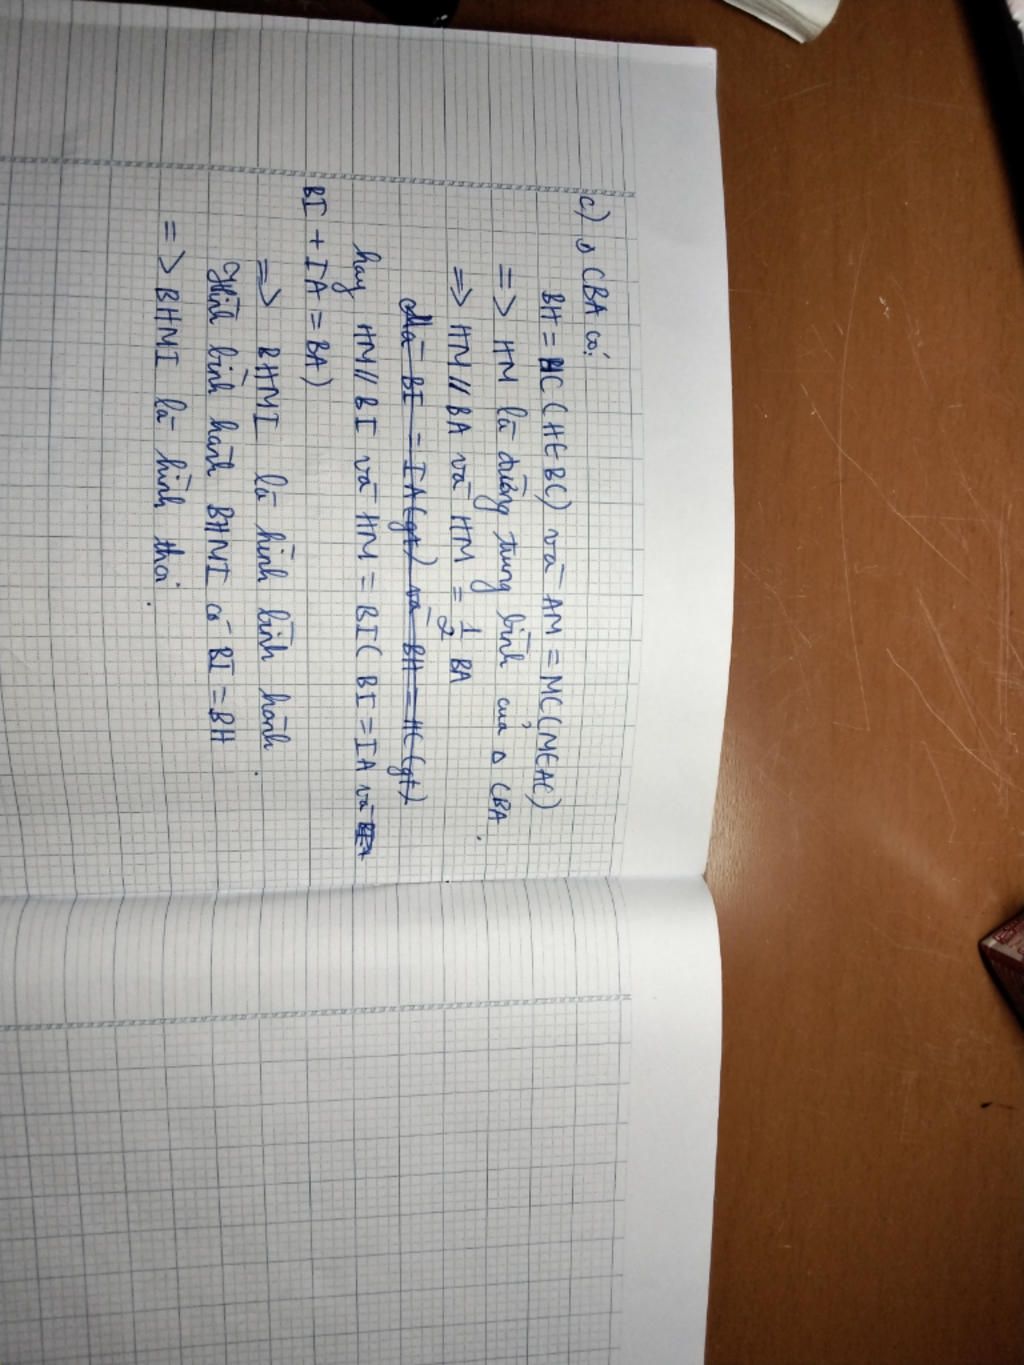 c) Δ CBA có:
BH = HC (H∈BC) và AM = MC (M∈AC)
=> HM là đường trung bình của Δ CBA.
=> HM // BA và HM = 1/2 BA
Mà BI = IA (gt) và BH = HC (gt)
hay HM // BI và HM = BI ( BI = IA và
BI + IA = BA)
=> BHMI là hình bình hành.
Hình bình hành BHMI có BI = BH
=> BHMI là hình thoi.